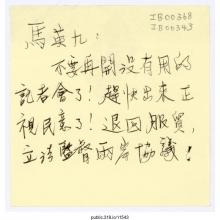 IB00368
IB00343
馬英九：
不要再開沒有用的
記者會了！趕快出來正
視民意了！退回服貿，
立法監督兩岸協議！
public.318.io/11543